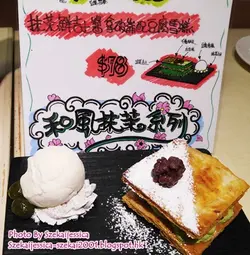 抹茶 吉士醬拿破崙配豆腐雪糕
$78
和風抹茶系列
Photo By Szekaijessica
Szekaijessica-szekai2001.blogspot.hk